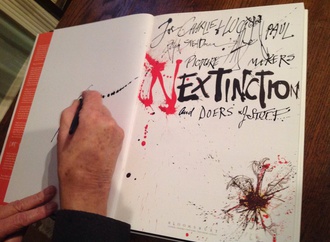 For CHARLIE & LUCY
PAUL
PICTURE MAKERS
NEXTINCTION
and DOERS of STUFF.
BLOOMSBURY